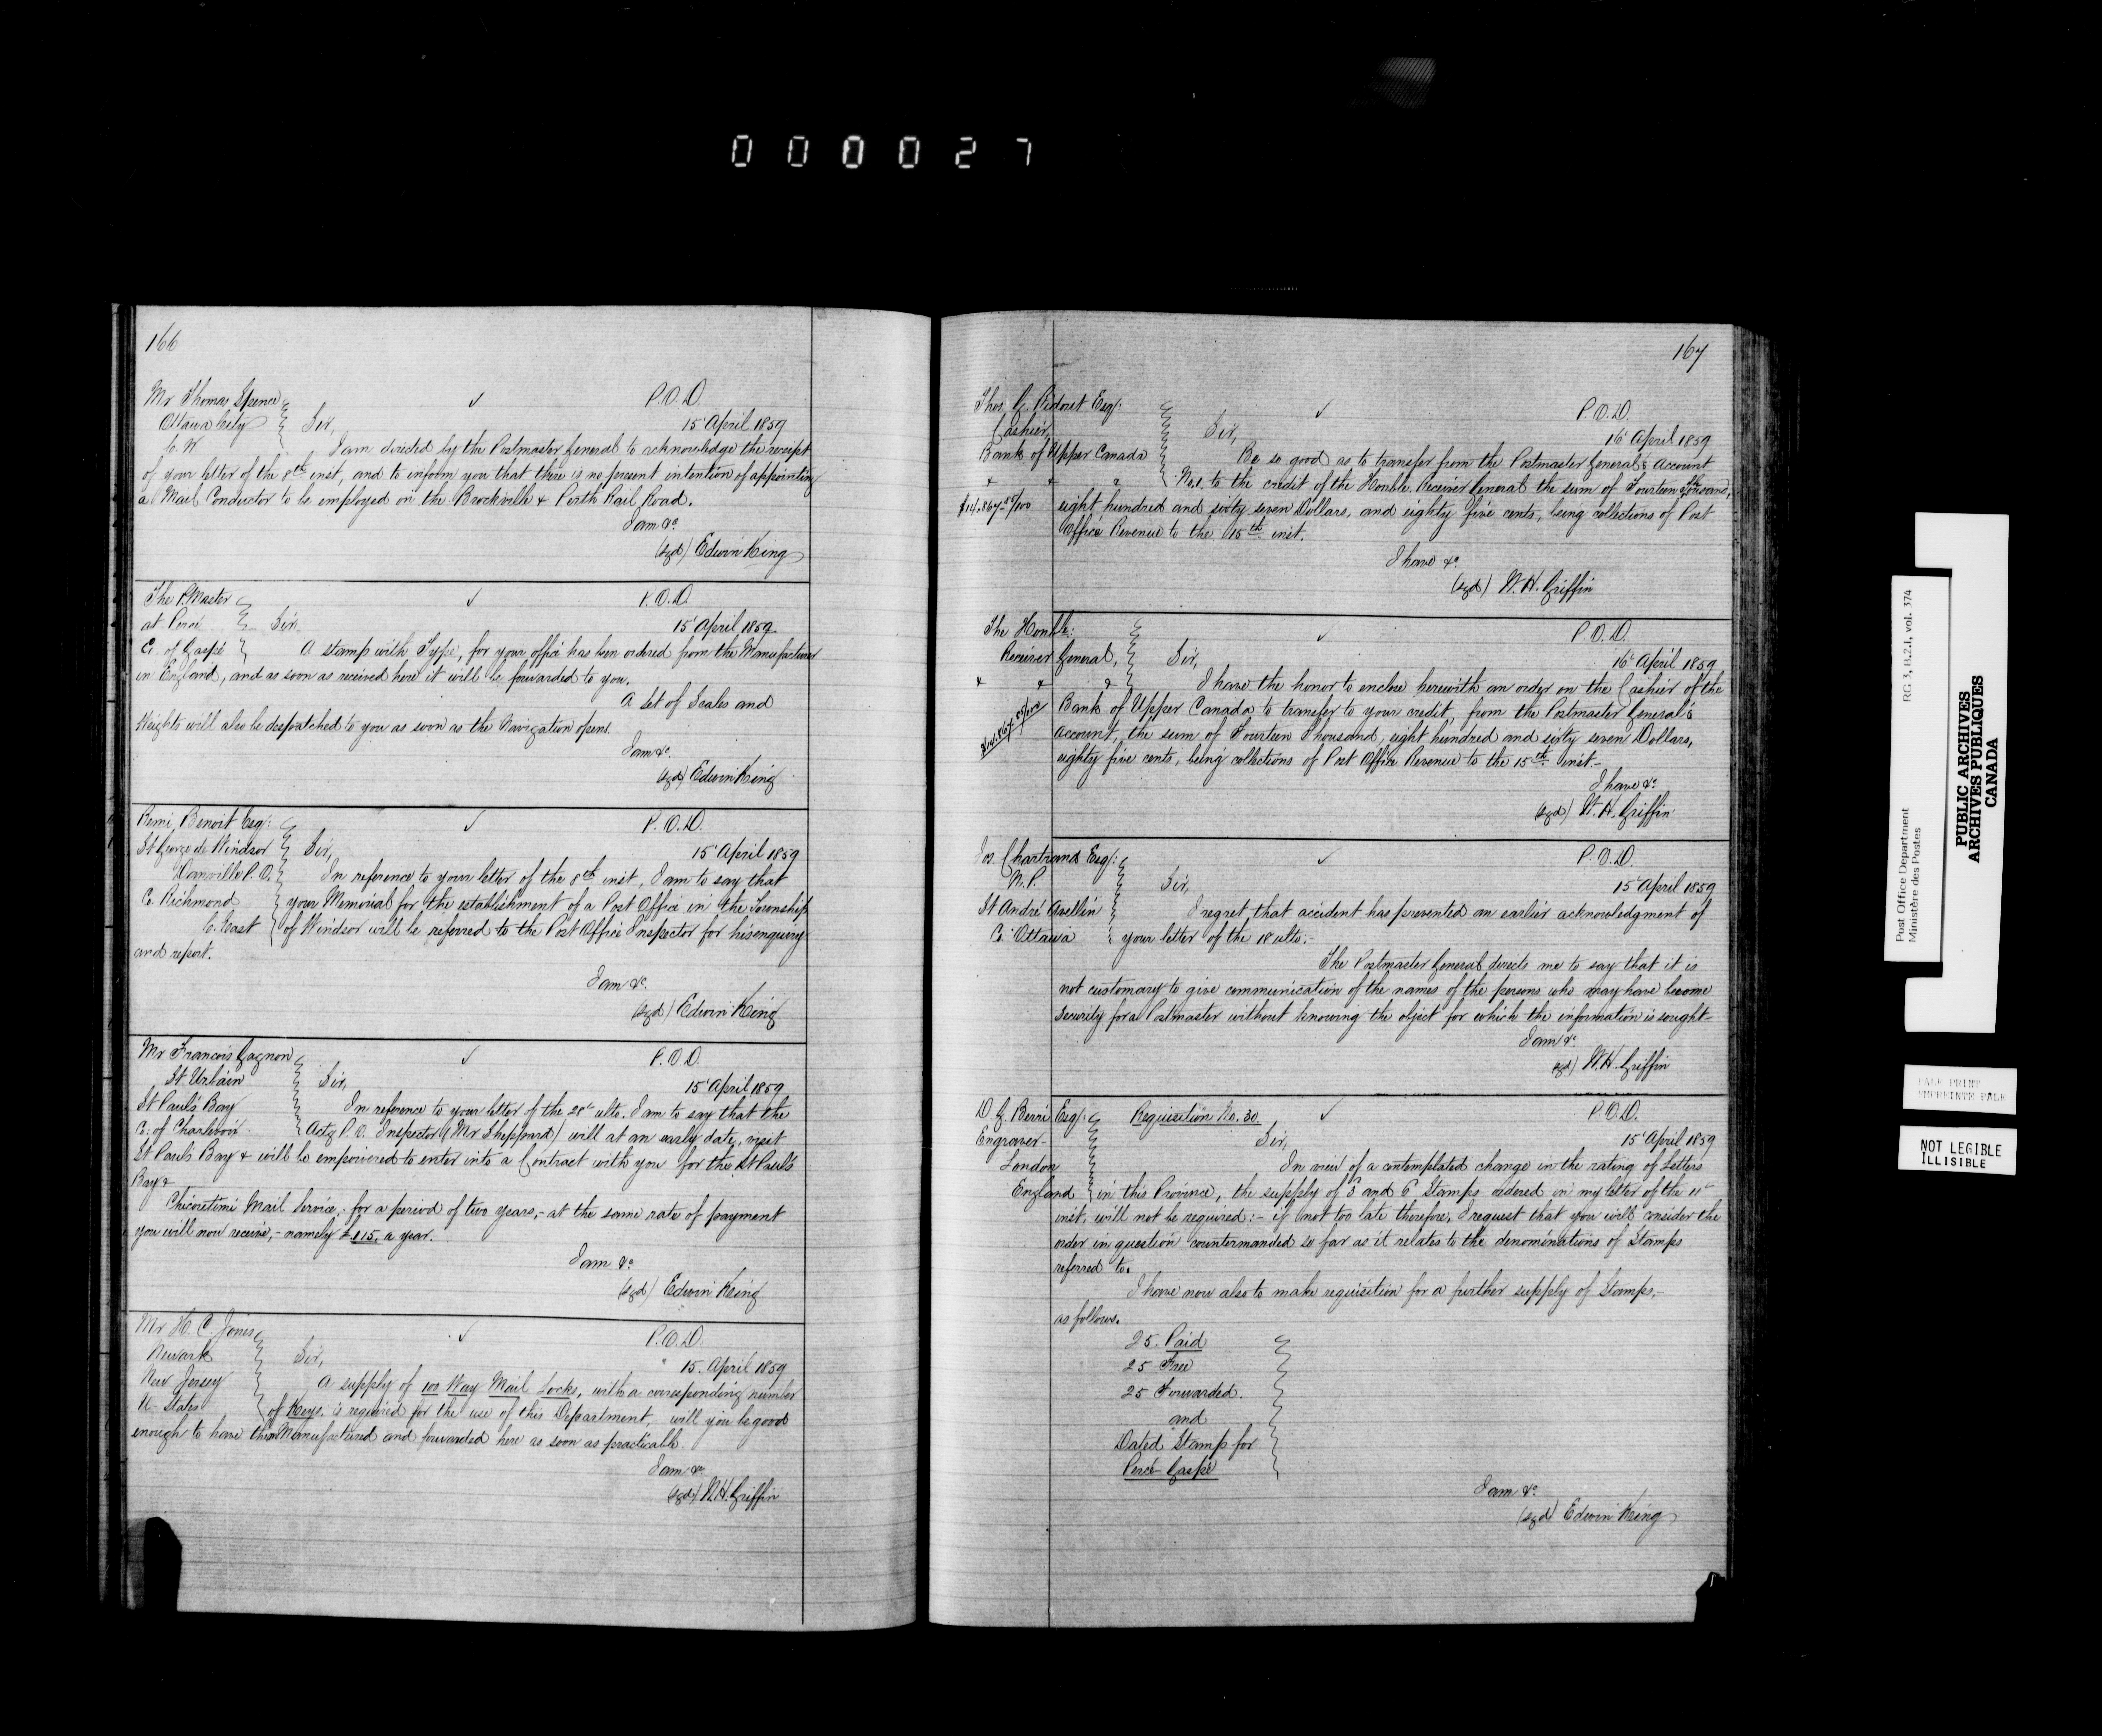 000027
166
Mr Thomas Spence
Ottawa City
C. W
✓
P.O.D.
15 April 1859
Sir,
I am directed by the Postmaster General to acknowledge the receipt
of your letter of the 8th inst, and to inform you that there is no present intention of appointing
a Mail Conductor to be employed on the Brockville & Perth Rail Road.
I am &c
(sgd) Edwin King
The P. Master
at Percé
C. of Gaspé
✓
P.O.D.
15 April 1859
Sir
A stamp with Type, for your office has been ordered from the Manufacturer
in England, and as soon as received here it will be forwarded to you.
A set of Scales and
Weights will also be despatched to you as soon as the Navigation opens.
I am &c.
(sgd) Edwin King
Remi Benoit Esq:
St George de Windsor
Danville P.O.
C. Richmond
C. East
✓
P.O.D.
15 April 1859
Sir,
In reference to your letter of the 8th inst, I am to say that
your Memorial for the establishment of a Post Office in the Township
of Windsor will be referred to the Post Office Inspector for his enquiry
and report.
I am &c.
(sgd) Edwin King
Mr Francois Gagnon
St Urbain
St Paul's Bay
C. of Charlevoix
✓
P.O.D.
15 April 1859
Sir,
In reference to your letter of the 28th ulto. I am to say that the
Actg P.O. Inspector (Mr Sheppard) will at an early date, visit
St Paul's Bay & will be empowered to enter into a Contract with you for the St Paul's
Bay &
Chicoutimi Mail Service,- for a period of two years,- at the same rate of payment
you will now receive,- namely £115. a year.
I am &c.
(sgd) Edwin King
Mr H. C. Jones
Newark
New Jersey
U- States
✓
P.O.D.
15. April 1859
Sir,
A supply of 100 Way Mail Locks, with a corresponding number
of Keys, is required for the use of this Department, will you be good
enough to have them Manufactured and forwarded here as soon as practicable.
I am &c
(sgd) W.H. Griffin
167
Thos G. Ridout Esq:
Cashier,
Bank of Upper Canada
✓
P.O.D.
16 April 1859
Sir,
Be so good as to transfer from the Postmaster General's Account
No.1. to the credit of the Honble. Receiver General the sum of Fourteen Thousand,
$14.867 85/100
eight hundred and sixty seven Dollars, and eighty five cents, being collections of Post
Office Revenue to the 15th inst.
I have &c
(sgd) W. H. Griffin
The Honble:
Receiver General,
✓
P.O.D.
16 April 1859
Sir,
I have the honor to enclose herewith an order on the Cashier of the
Bank of Upper Canada to transfer to your credit, from the Postmaster General's
$14.867 85/100
account, the sum of Fourteen Thousand, eight hundred and sixty seven Dollars,
eighty five cents, being collections of Post Office Revenue to the 15th inst-
I have &c
(sgd) W. H. Griffin
Jos. Chartrand Esq:
N.P.
St André Avellin
C. Ottawa
✓
P.O.D.
15 April 1859
Sir,
I regret that accident has prevented an earlier acknowledgment of
your letter of the 18 ulto.-
The Postmaster General directs me to say that it is
not customary to give communication of the names of the persons who may have become
Security for a Postmaster without knowing the object for which the information is sought-
I am &c
sgd) W.H. Griffin
D. G. Berri Esq:
Engraver-
London
England
Requisition No. 30.
✓
P.O.D.
15 April 1859
Sir,
In view of a contemplated change in the rating of Letters
in this Province, the supply of 3 and 6 Stamps ordered in my letter of the 11
inst, will not be required:- if not too late therefore, I request that you will consider the
order in question countermanded so far as it relates to the denominations of Stamps
referred to.
I have now also to make requisition for a further supply of Stamps,-
as follows.
25. Paid
25 Free
25 Forwarded.
and
Dated Stamp for
Percé- Gaspé
I am &c.
(sgd) Edwin King
Post Office Department
Ministère des Postes
RG 3, B.2.1, vol. 374
PUBLIC ARCHIVES
ARCHIVES PUBLIQUES
CANADA
PALE PRINT
NOT LEGIBLE
ILLISIBLE